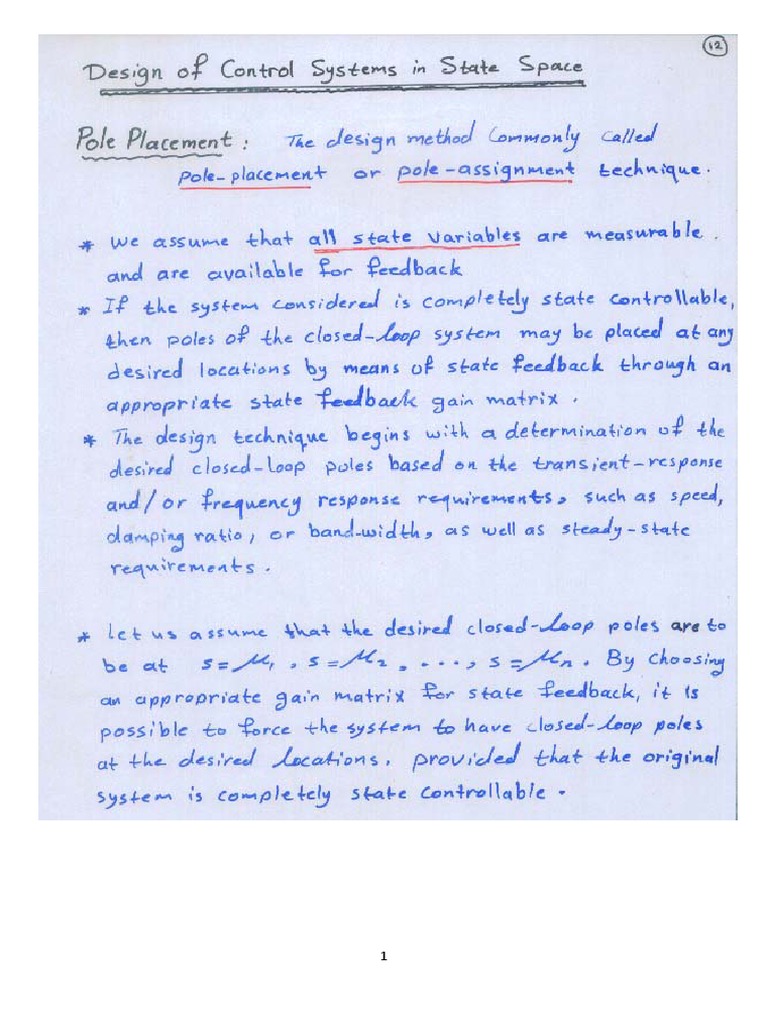 12
Design of Control Systems in State Space
Pole Placement : The design method Commonly called
pole-placement or pole-assignment technique.
* We assume that all state variables are measurable.
and are available for feedback
* If the system considered is completely state controllable,
then poles of the closed-loop system may be placed at any
desired locations by means of state feedback through an
appropriate state feedback gain matrix.
* The design technique begins with a determination of the
desired closed-loop poles based on the transient-response
and/or frequency response requirements, such as speed,
damping ratio, or band-width, as well as steady-state
requirements.
* Let us assume that the desired closed-loop poles are to
be at s=μ₁, s=μ₂, ..., s=μₙ. By choosing
an appropriate gain matrix for state feedback, it is
possible to force the system to have closed-loop poles
at the desired locations, provided that the original
system is completely state controllable.
1